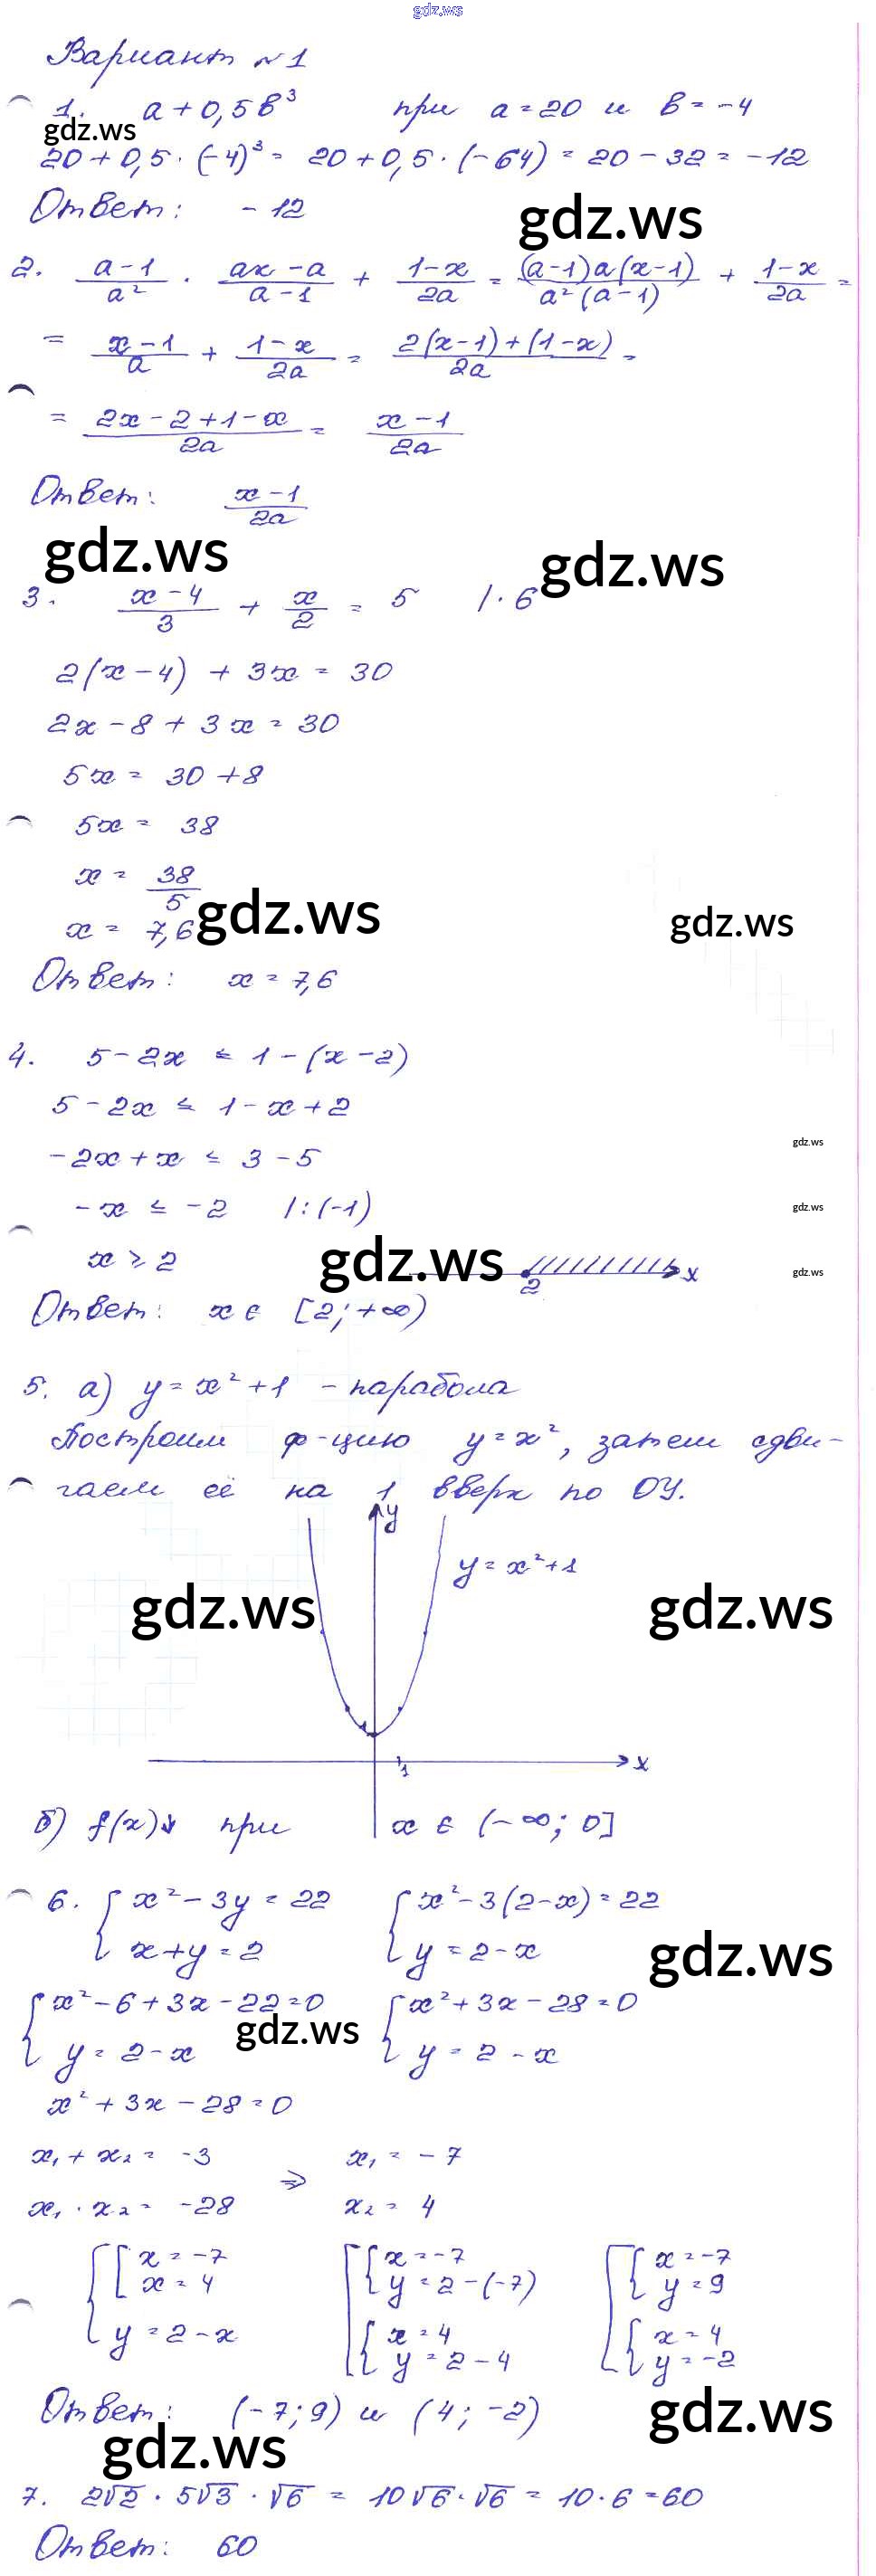 gdz.ws
Вариант №1
1. a + 0,5b³ при a = 20 и b = -4
gdz.ws
20 + 0,5 · (-4)³ = 20 + 0,5 · (-64) = 20 - 32 = -12
Ответ: -12
gdz.ws
2. (a-1)/a² · (ax-a)/(a-1) + (1-x)/2a = (a-1)a(x-1)/a²(a-1) + (1-x)/2a =
= (x-1)/a + (1-x)/2a = (2(x-1)+(1-x))/2a =
= (2x-2+1-x)/2a = (x-1)/2a
Ответ: (x-1)/2a
gdz.ws gdz.ws
3. (x-4)/3 + x/2 = 5 | · 6
2(x-4) + 3x = 30
2x - 8 + 3x = 30
5x = 30 + 8
5x = 38
x = 38/5
gdz.ws gdz.ws
x = 7,6
Ответ: x = 7,6
4. 5 - 2x ≤ 1 - (x - 2)
5 - 2x ≤ 1 - x + 2
gdz.ws
-2x + x ≤ 3 - 5
-x ≤ -2 | : (-1)
gdz.ws
x ⩾ 2
gdz.ws
2 x
gdz.ws
Ответ: x ∈ [2; +∞)
5. а) y = x² + 1 - парабола
Построим ф-цию y = x², затем сдви-
гаем её на 1 вверх по ОУ.
y
y = x² + 1
gdz.ws gdz.ws
1
x
1
б) f(x)↓ при x ∈ (-∞; 0]
6. { x² - 3y = 22 { x² - 3(2-x) = 22
x + y = 2 y = 2 - x
gdz.ws
{ x² - 6 + 3x - 22 = 0 { x² + 3x - 28 = 0
gdz.ws
y = 2 - x y = 2 - x
x² + 3x - 28 = 0
x₁ + x₂ = -3 ⇒ x₁ = -7
x₁ · x₂ = -28 x₂ = 4
{ [ x = -7 [ { x = -7 [ { x = -7
x = 4 y = 2 - (-7) y = 9
y = 2 - x { x = 4 { x = 4
y = 2 - 4 y = -2
Ответ: (-7; 9) и (4; -2)
gdz.ws
gdz.ws
7. 2√2 · 5√3 · √6 = 10√6 · √6 = 10 · 6 = 60
Ответ: 60